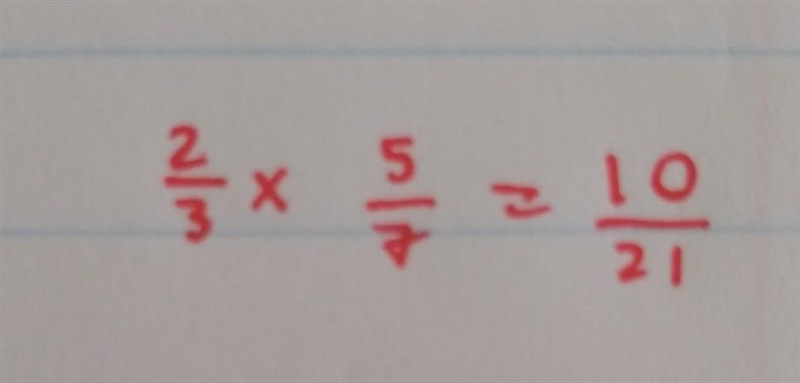 2/3 x 5/7 = 10/21